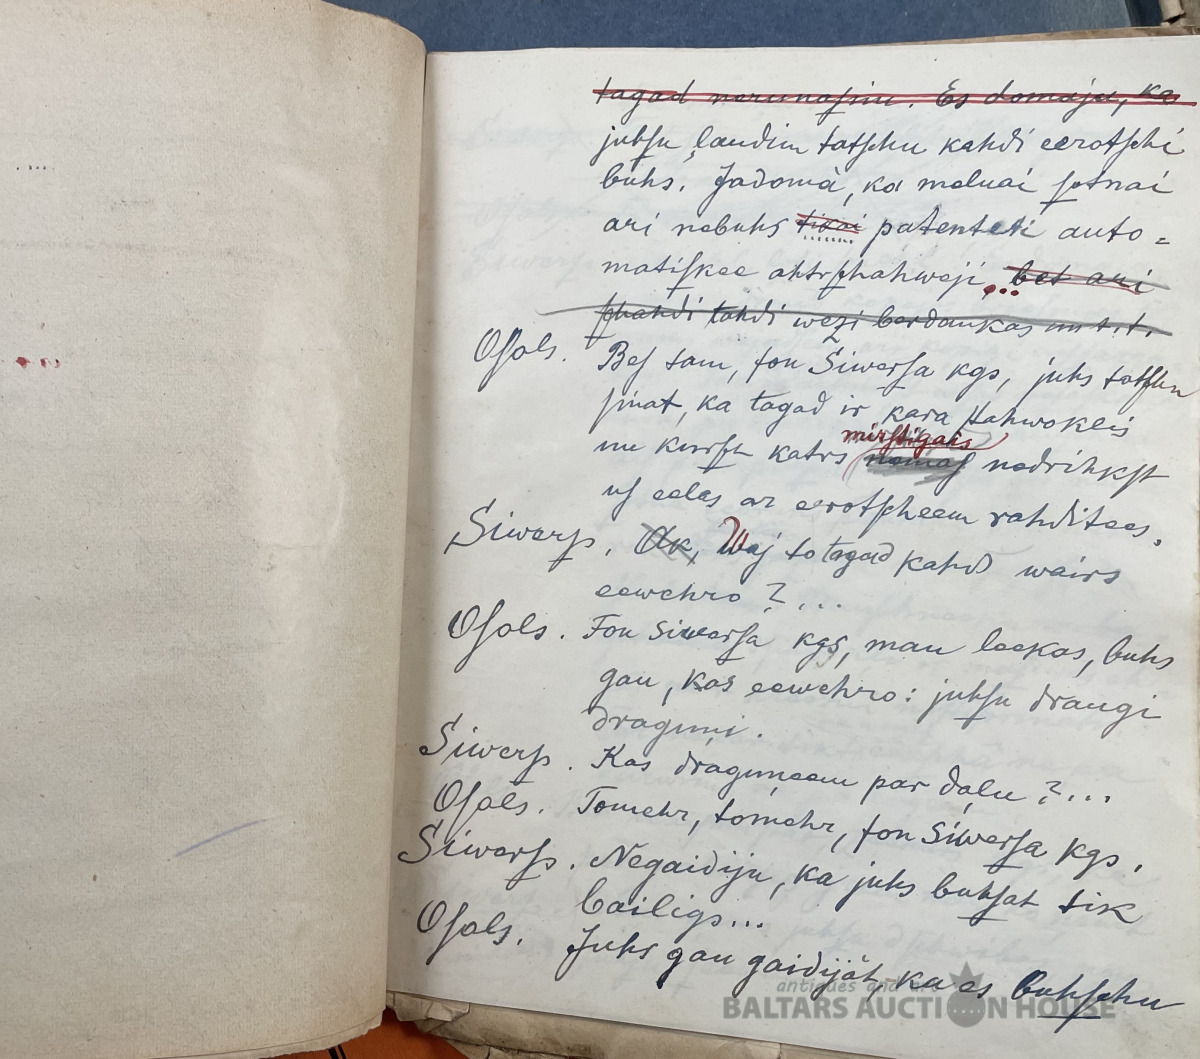 tagad nerunaſim. Es domaju, ka
juhſu ļaudim tatſchu kahdi eerotſchi
buhs. Jadomā, ka melnai ſotnai
ari nebuhs tikai patenteti auto=
matiſkee ahtrſchahweji... bet ari
ſchahdi tahdi wezi berdankas un t.t.
Oſols. Bes tam, fon Siwerſa kgs, juhs tatſchu
ſinat, ka tagad ir kara ſtahwoklis
un kurſch katrs mirſtigais nemaſ nedrihkſt
uſ eelas ar eerotſcheem rahditees.
Siwerſs. Ak, Waj to tagad kahd wairs
eewehro?...
Oſols. Fon Siwerſa kgs, man leekas, buhs
gan, kas eewehro: juhſu draugi
draguņi.
Siwerſs. Kas draguņeem par daļu?...
Oſols. Tomehr, tomehr, fon Siwerſa kgs.
Siwerſs. Negaidiju, ka juhs buhſat tik
bailigs...
Oſols. Juhs gan gaidijāt, ka es buhſchu
antiques and art
BALTARS AUCTION HOUSE